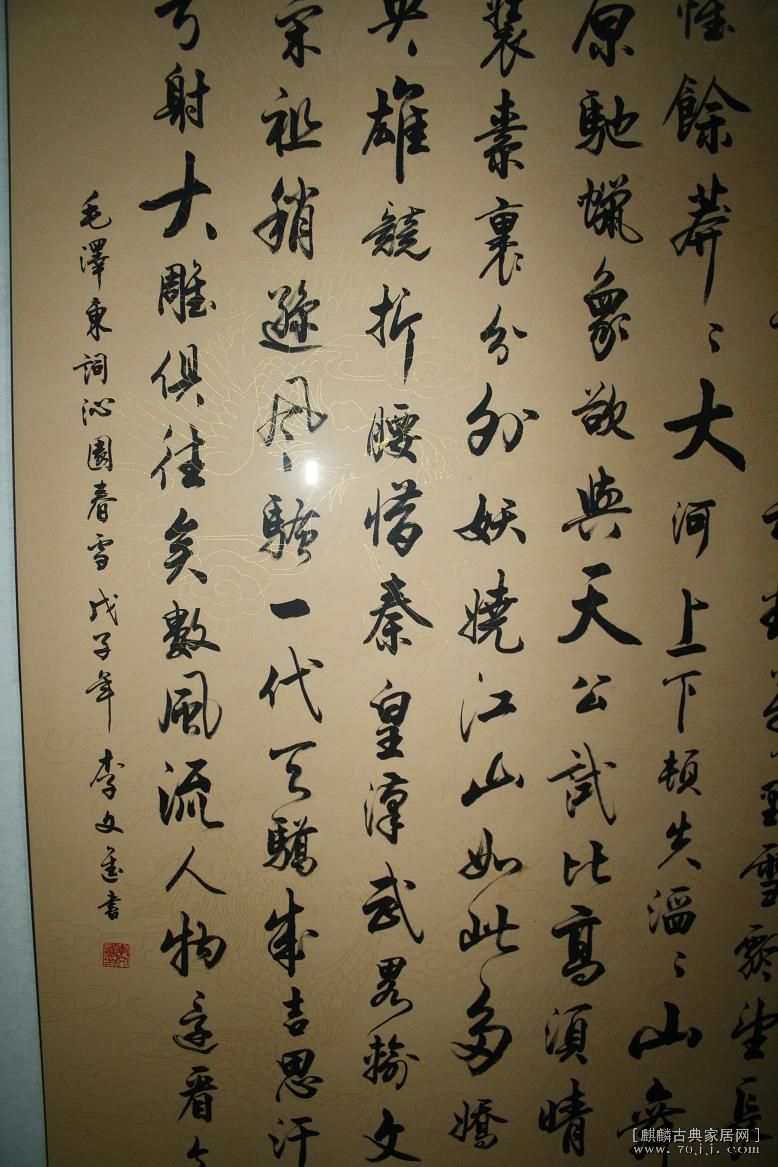 里雪飄望長
惟餘莽〻大河上下頓失滔〻山舞
原馳蠟象欲與天公試比高須晴
裝素裹分外妖嬈江山如此多嬌
英雄競折腰惜秦皇漢武畧輸文
宋祖稍遜風騷一代天驕成吉思汗
弓射大雕俱往矣數風流人物還看今
毛澤東詞沁園春雪戊子年李文書
[麒麟古典家居网]
www.70jj.com